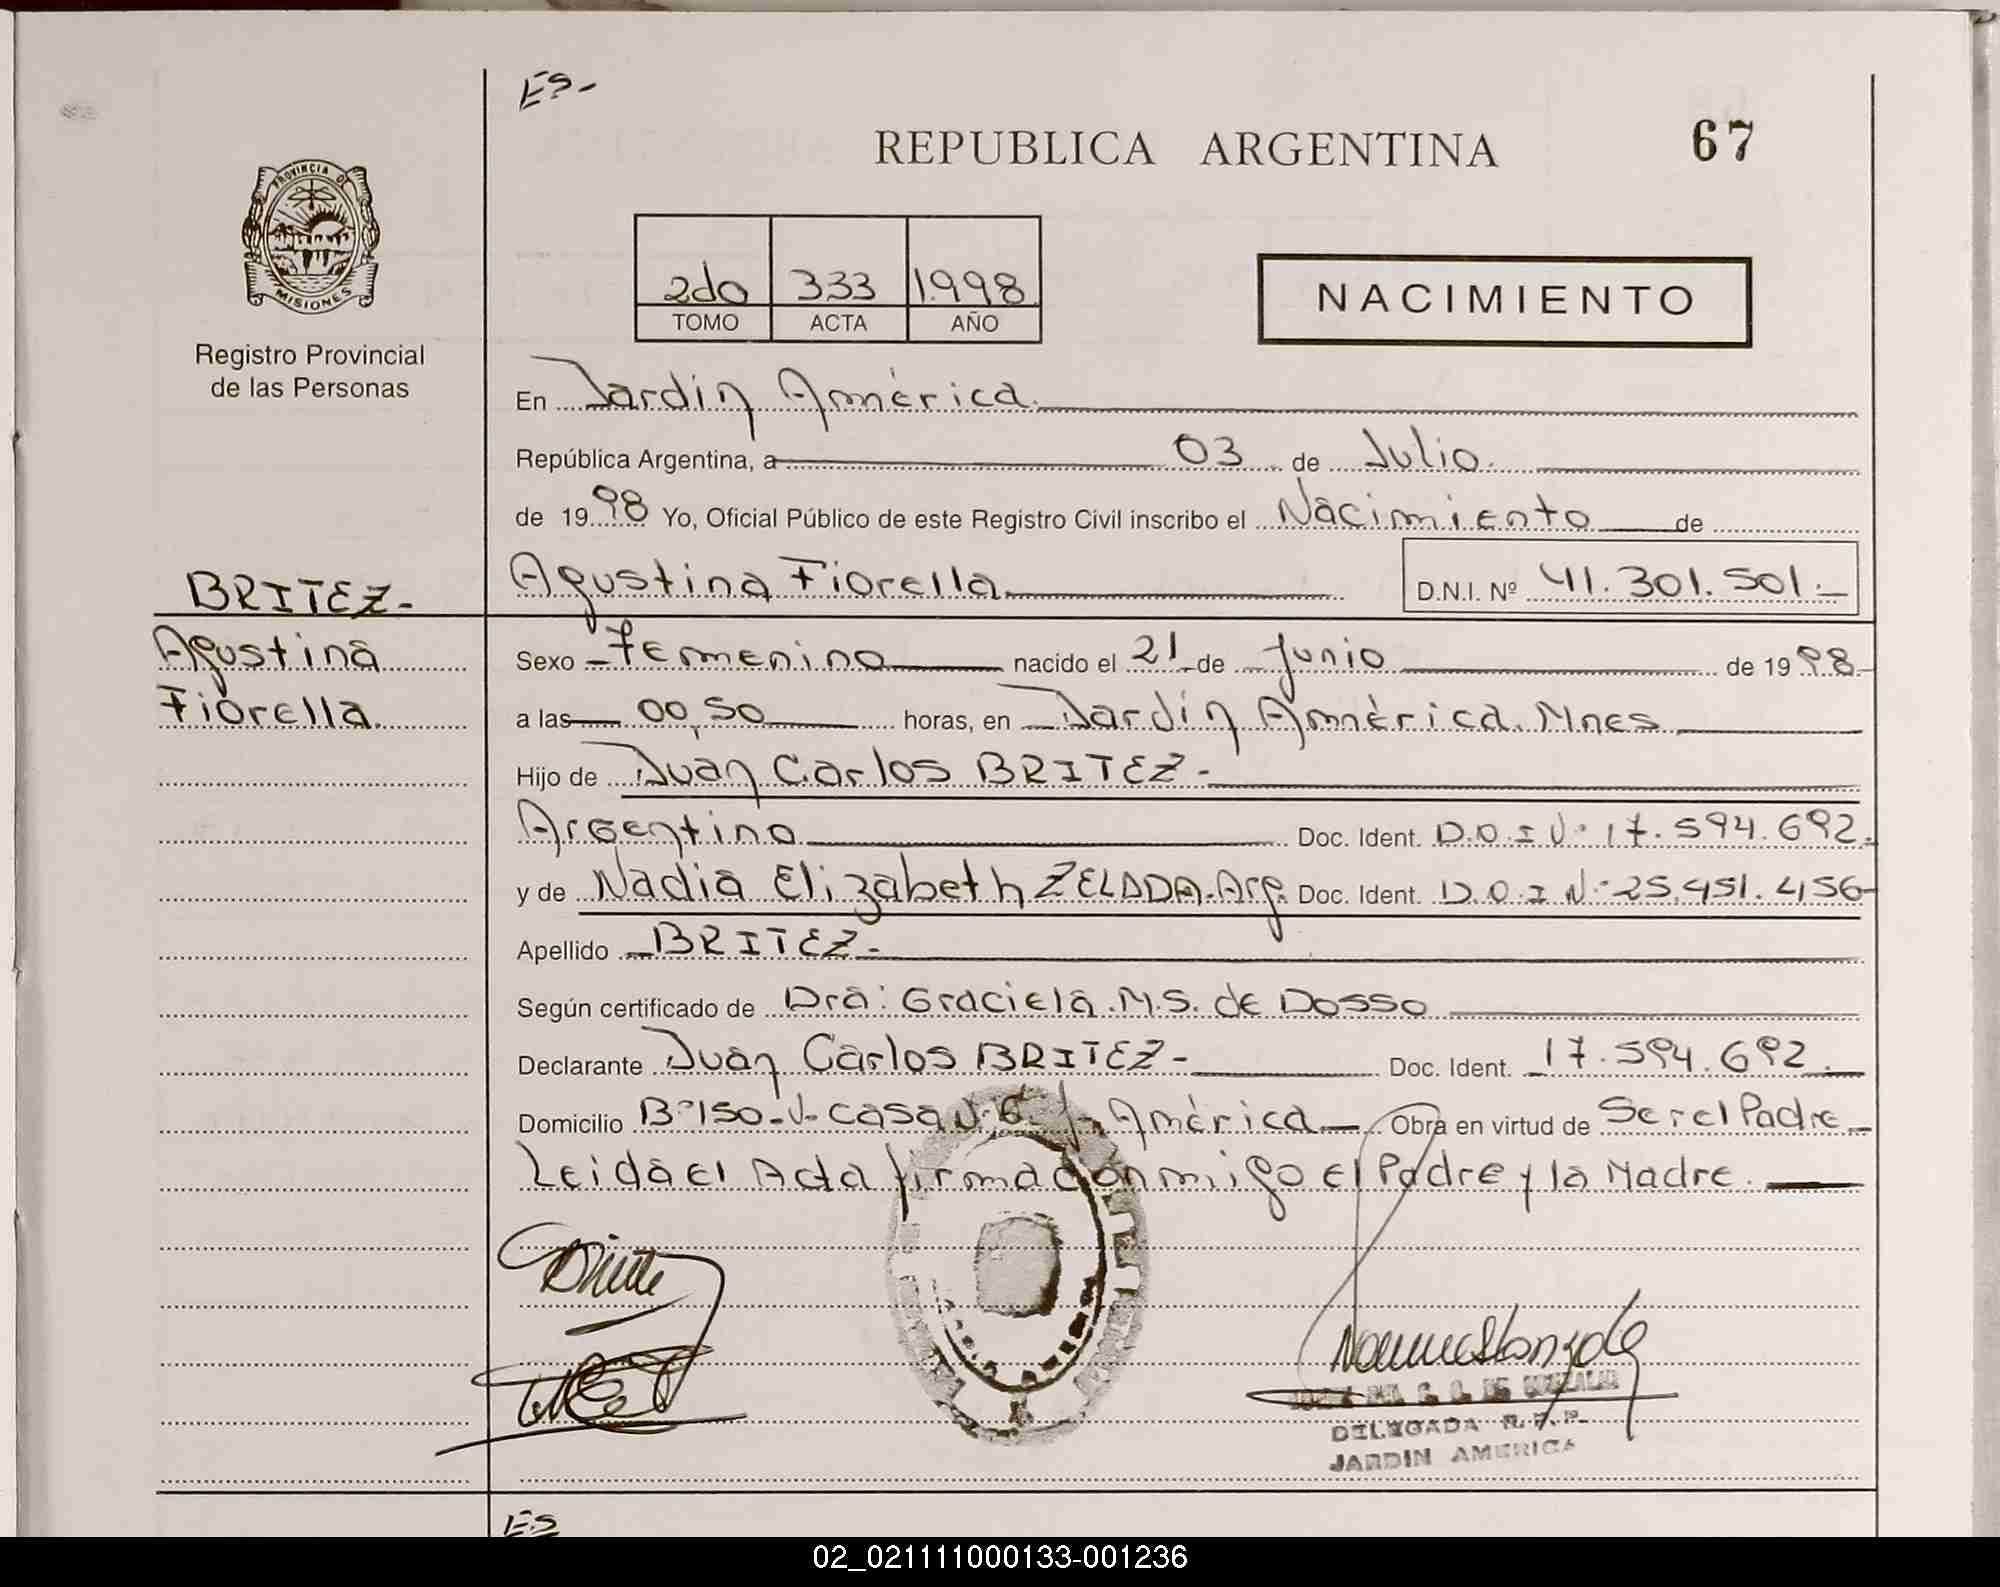 Es-
REPUBLICA ARGENTINA
67
PROVINCIA DE
MISIONES
Registro Provincial
de las Personas
2do 333 1.998
TOMO ACTA AÑO
NACIMIENTO
En Jardín América.
República Argentina, a 03 de Julio.
de 1998 Yo, Oficial Público de este Registro Civil inscribo el Nacimiento de
BRITEZ-
Agustina Fiorella D.N.I. Nº 41.301.501.-
Agustina
Fiorella.
Sexo Femenino nacido el 21 de Junio de 1998-
a las 00,50 horas, en Jardín América. Mnes
Hijo de Juan Carlos BRITEZ-
Argentino Doc. Ident. D.N.I N: 17.594.692.
y de Nadia Elizabeth ZELADA-Arg. Doc. Ident. D.N.I N:-25.451.456-
Apellido BRITEZ-
Según certificado de Dra: Graciela.M.S. de Dosso
Declarante Juan Carlos BRITEZ- Doc. Ident. 17.594.692.
Domicilio B:150-V-casa N:6 J. América Obra en virtud de Ser el Padre
Leida el Acta firma conmigo el Padre y la Madre.
DELEGADA R.P.P.
JARDIN AMERICA
ES
02_021111000133-001236